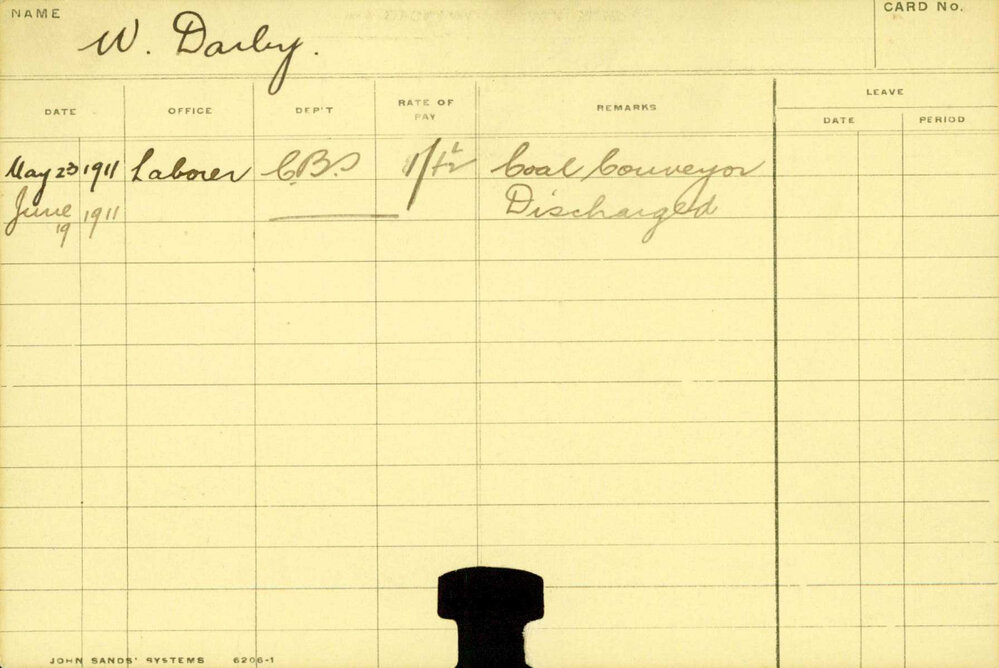 NAME
W. Darby.
CARD No.
DATE OFFICE DEP'T RATE OF PAY REMARKS LEAVE
DATE PERIOD
May 23 1911 Laborer C.B.S 1/1½ Coal Conveyor
June 19 1911 Discharged
JOHN SANDS' SYSTEMS 6206-1